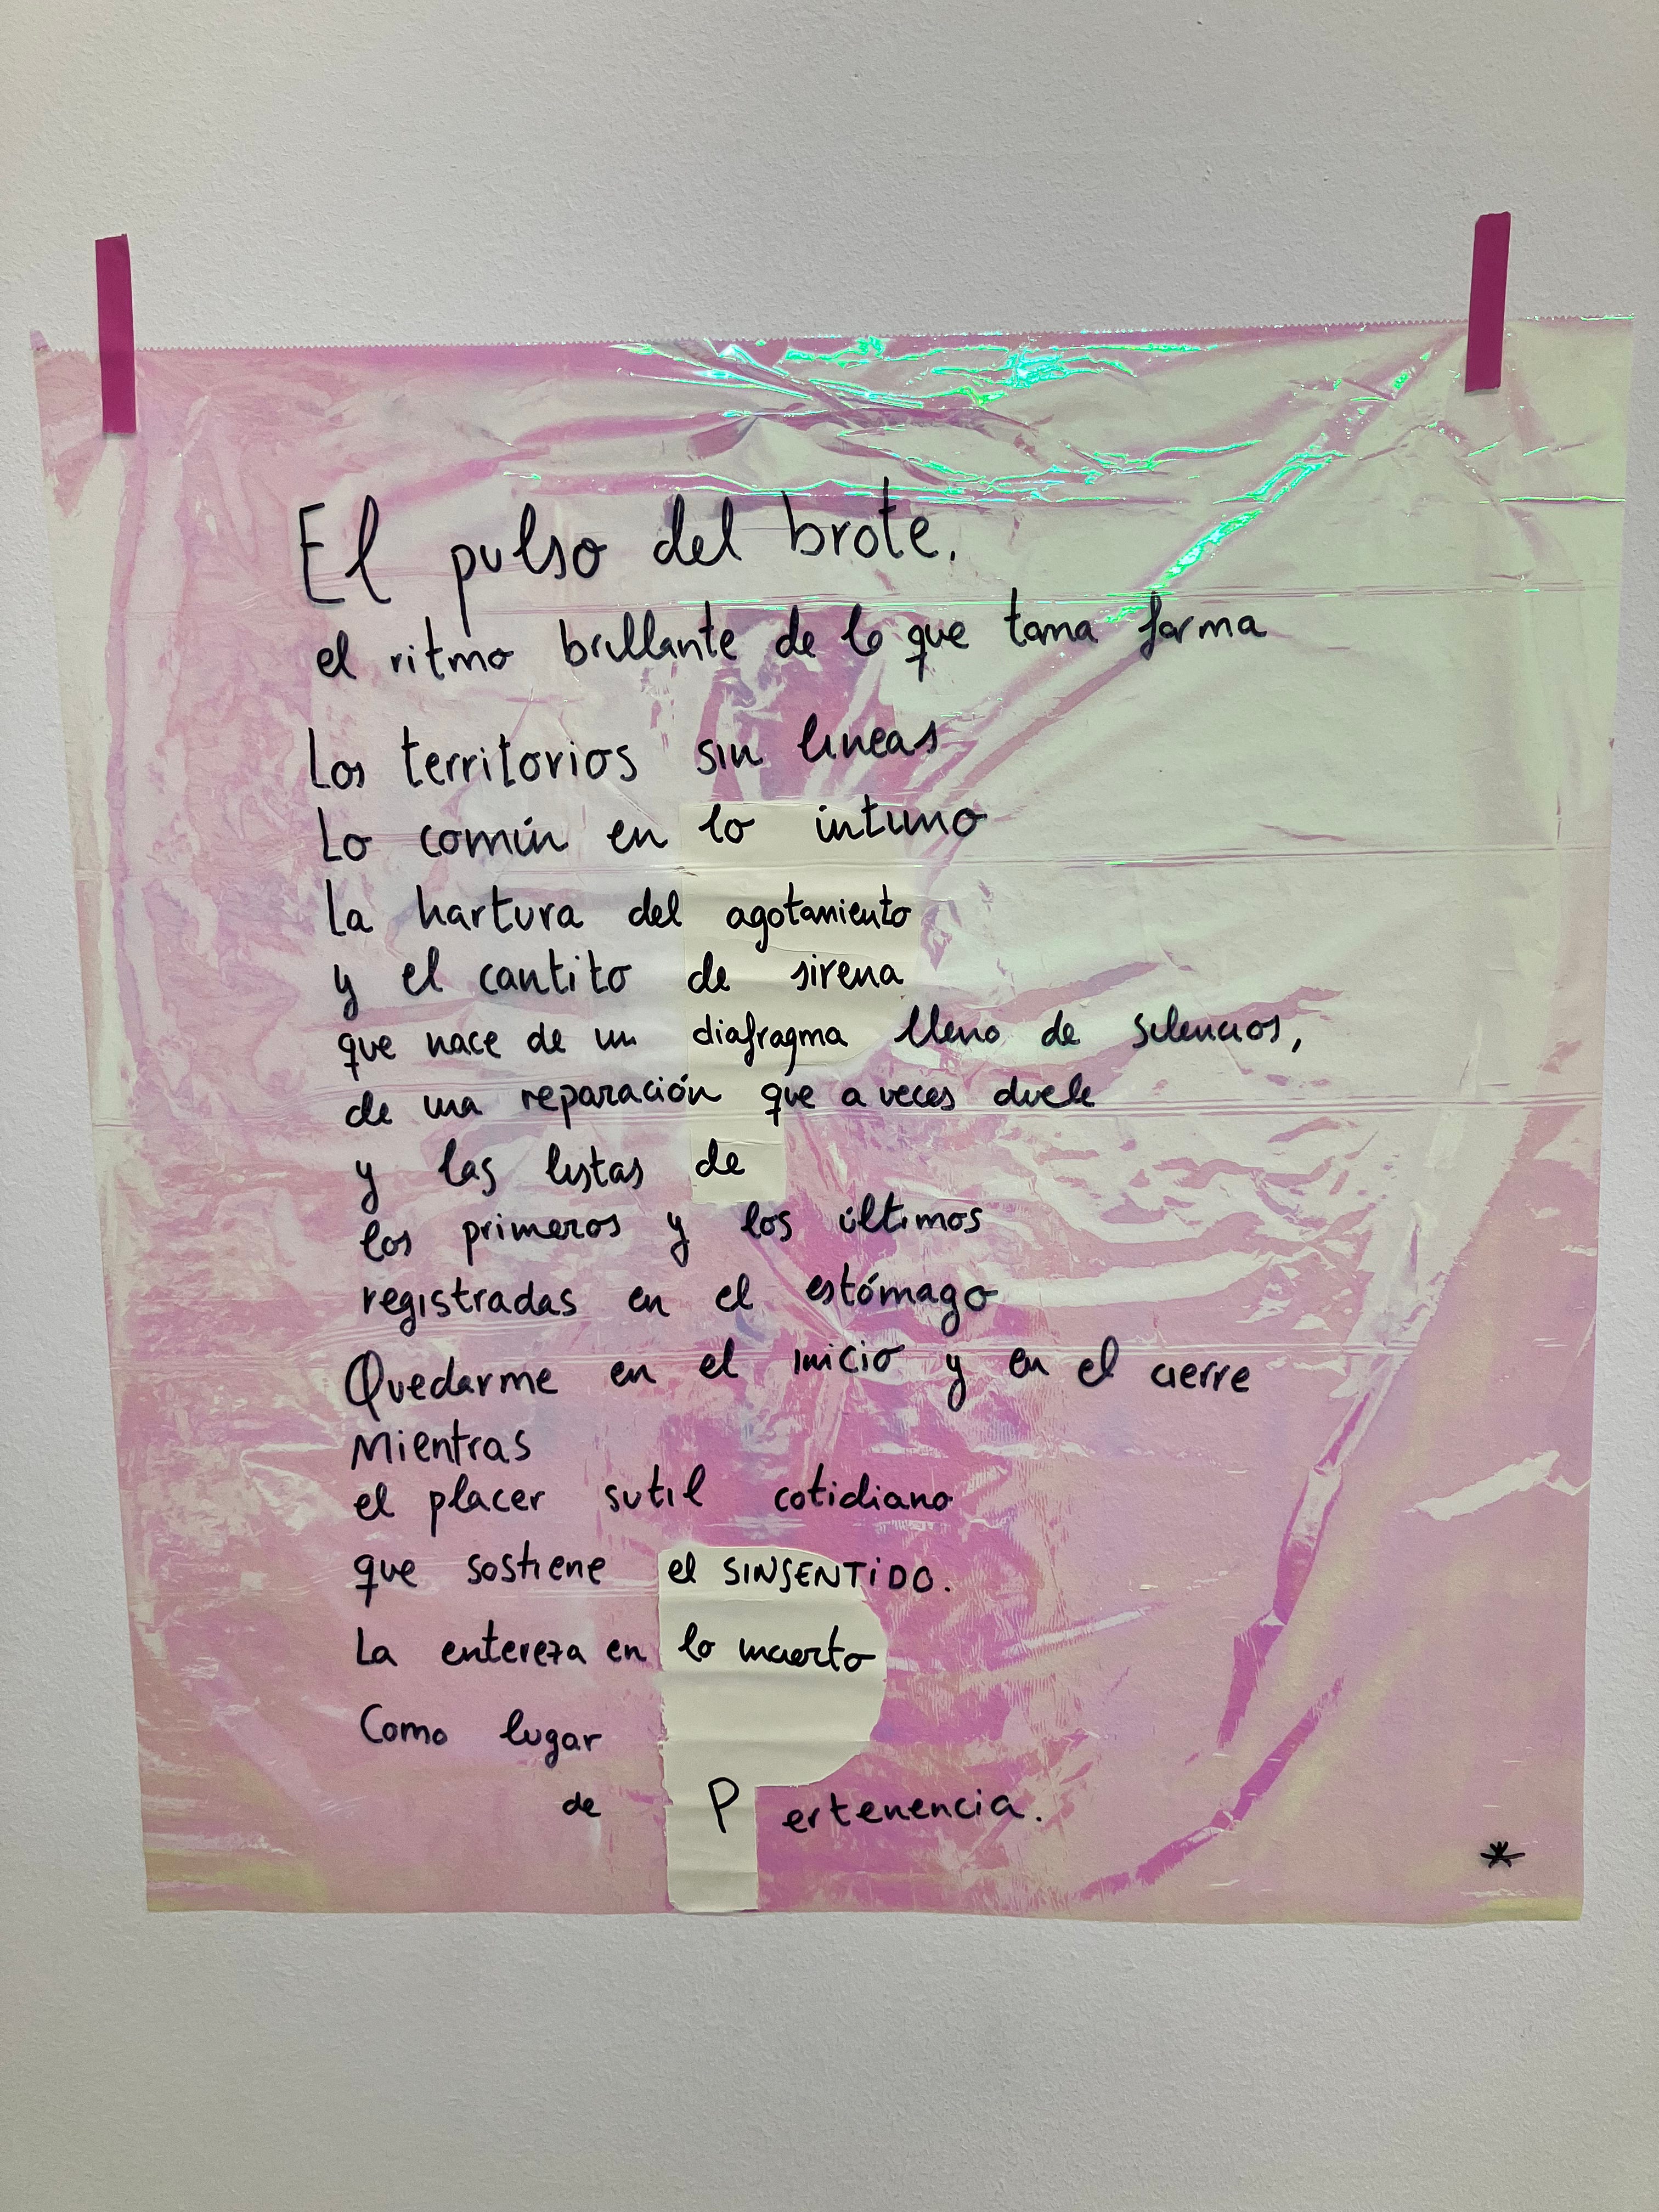 El pulso del brote,
el ritmo brillante de lo que toma forma
Los territorios sin lineas
Lo común en lo íntimo
La hartura del agotamiento
y el cantito de sirena
que nace de un diafragma lleno de silencios,
de una reparación que a veces duele
y las listas de
los primeros y los últimos
registradas en el estómago
Quedarme en el inicio y en el cierre
Mientras
el placer sutil cotidiano
que sostiene el SINSENTIDO.
La entereza en lo
Como lugar
de Pertenencia.
*